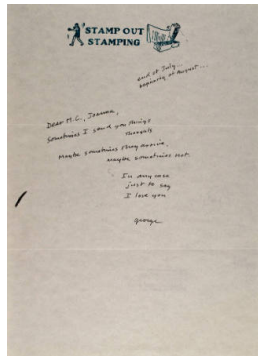 STAMP OUT
STAMPING
end of July...
beginning of August...
Dear M.C., Joanna,
Sometimes I send you things
thoughts
maybe sometimes they arrive,
maybe sometimes not.
In any case
just to say
I love you
george